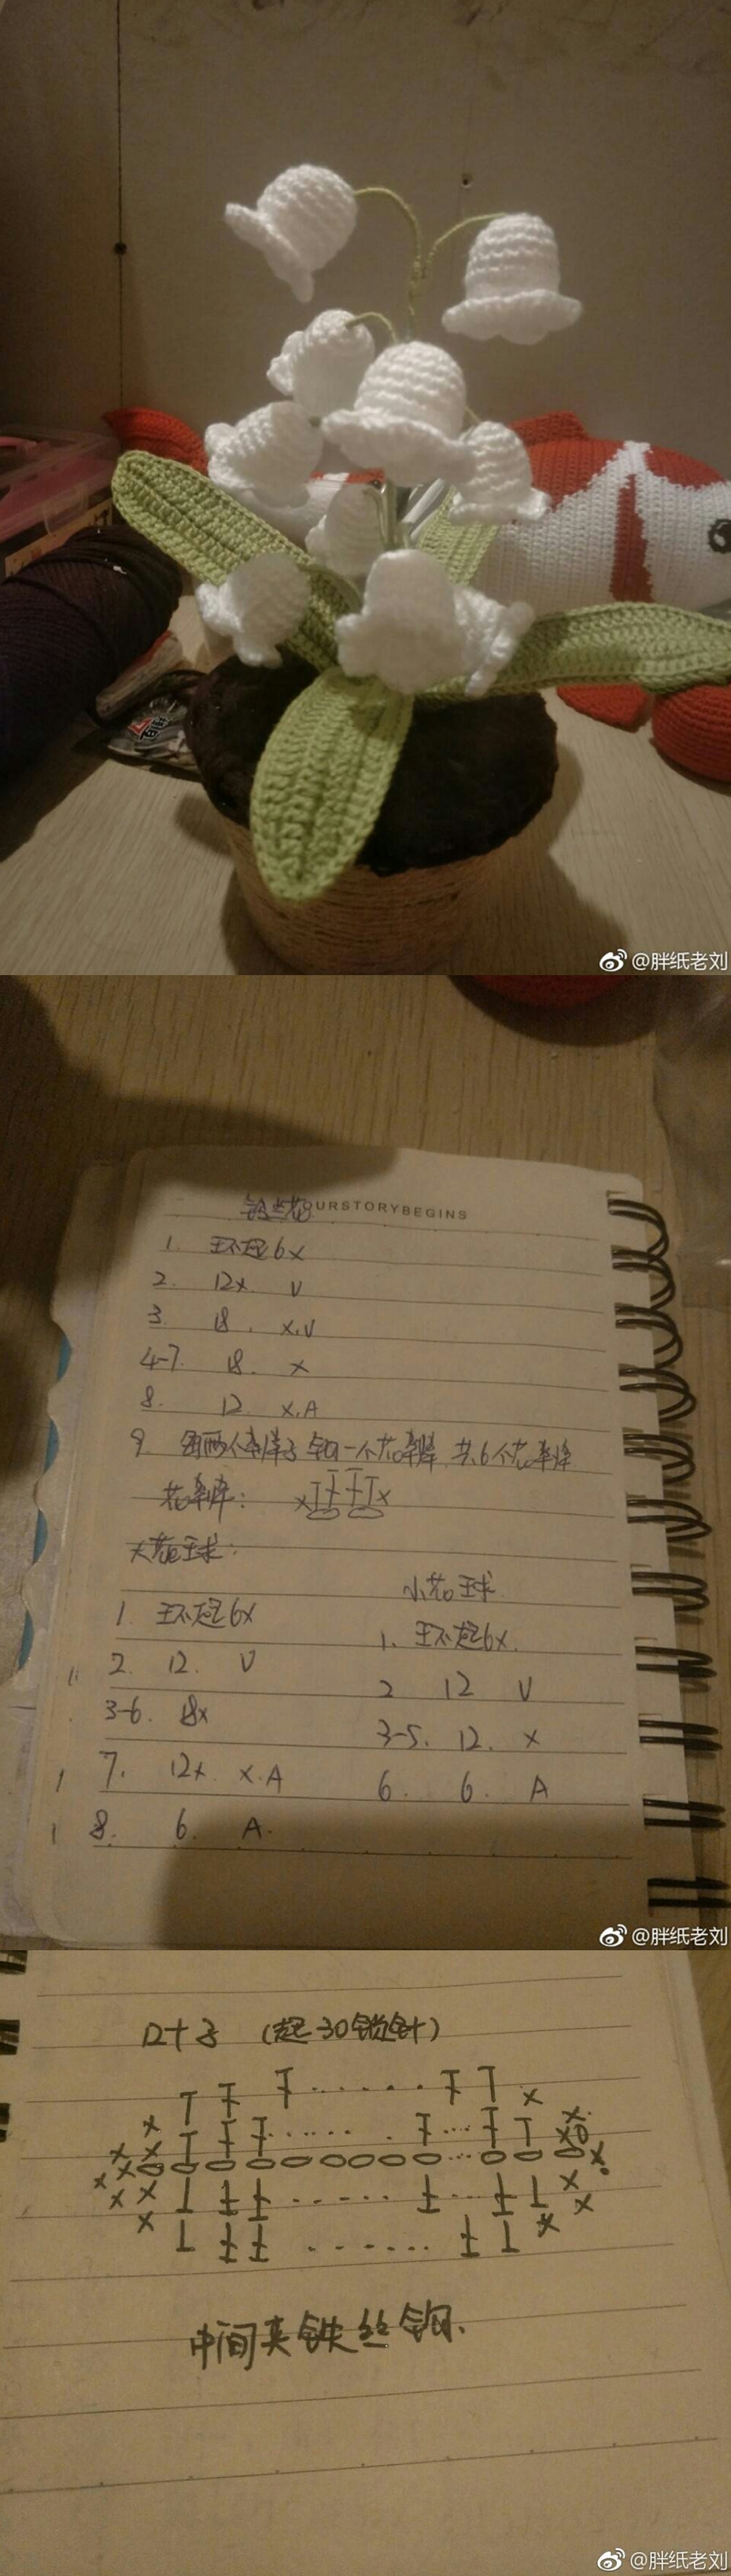 @胖纸老刘
铃兰花
OURSTORYBEGINS
1. 环起6x
2. 12x. V
3. 18. x.V
4-7. 18. x
8. 12. x.A
9. 每两个针 钩一个花瓣 共6个花瓣
花瓣: xTFFTx
大花球:
1. 环起6x
2. 12. V
3-6. 18x
7. 12x. x.A
8. 6. A.
小花球
1. 环起6x.
2 12 V
3-5. 12. x
6. 6. A
@胖纸老刘
叶子 (起30锁针)
中间夹铁丝钩.
@胖纸老刘